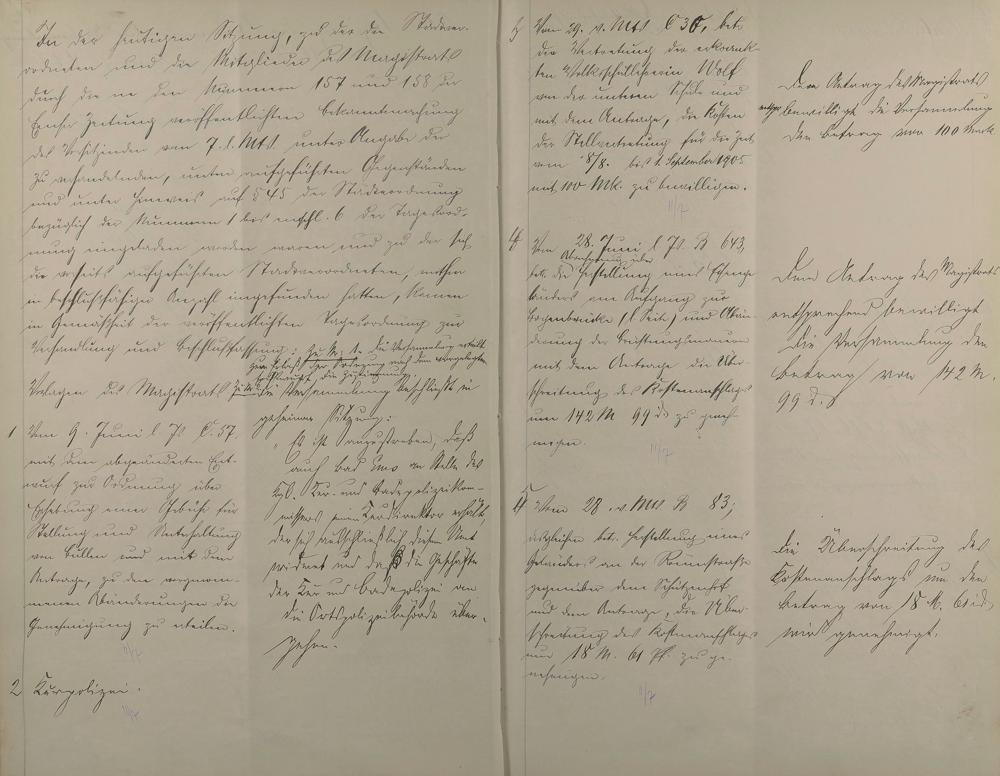 In der heutigen Sitzung, zu der die Stadtver-
ordneten und die Mitglieder des Magistrats
durch die in den Nummern 157 und 158 der
Emser Zeitung veröffentlichten Bekanntmachung
des Vorsitzenden vom 7. d. Mts. unter Angabe der
zu verhandelnden, unten aufgeführten Gegenständen
und unter Hinweis auf § 45 der Städteordnung
bezüglich der Nummern 1 bis einschl. 6 der Tagesord-
nung eingeladen worden waren und zu der sich
die aufgeführten Stadtverordneten, mithin
in beschlußfähiger Anzahl eingefunden hatten, kamen
in Gemäßheit der veröffentlichten Tagesordnung zur
Verhandlung und Beschlußfassung:
Vorlagen des Magistrats
Zu Nr. 1. Die Versammlung erteilt
zum Erlaß der Ordnung nach dem vorgelegten
die Zustimmung.
1 Vom 9. Juni l. Js. C. 57,
mit dem abgeänderten Ent-
wurf zur Ordnung über
Erhebung einer Gebühr für
Stellung und Unterhaltung
von Bullen und mit dem
Antrage, zu den vorgenom-
menen Abänderungen die
Genehmigung zu erteilen.
11/7
2 Kurpolizei.
Die Versammlung beschließt in
geheimer Sitzung:
"Es ist anzustreben, daß
auch Bad Ems an Stelle des
Kgl. Kur- und Badepolizeikom-
missars einen Kurdirektor erhält,
der sich ausschließlich diesem Amt
widmet und daß die Geschäfte
der Kur und Badepolizei an
die Ortspolizeibehörde über-
gehen.
3 Vom 29. v. Mts. C 35, betr.
die Vertretung der erkrank-
ten Volksschullehrerin Wolf
von der unteren Schule und
mit dem Antrage, die Kosten
der Stellvertretung für die Zeit
vom 8/8. bis 1. September 1905
mit 100 Mk. zu bewilligen.
11/7
Dem Antrag des Magistrats
entspr. bewilligt die Versammlung
den Betrag von 100 Mark
4 Vom 28. Juni l. Js. B 643,
Abrechnung über
betr. die Herstellung eines
am Aufgang zur
Bogenbrücke (l. Seit.) und Abän-
derung der
mit dem Antrage die Über-
schreitung des Kostenanschlags
um 142 M 99 ₰ zu geneh-
migen.
11/7
Dem Antrag des Magistrats
entsprechend bewilligt
die Versammlung den
Betrag von 142 M.
99 ₰.
5 Vom 28. v. Mts B 83,
desgleichen betr. Herstellung eines
Geländers an der Römerstraße
gegenüber dem Schützenhof
und dem Antrage, die Über-
schreitung des Kostenanschlags
um 18 M. 61 Pf. zu ge-
nehmigen.
11/7
Die Überschreitung des
Kostenanschlags um den
Betrag von 18 M. 61 ₰
wird genehmigt.